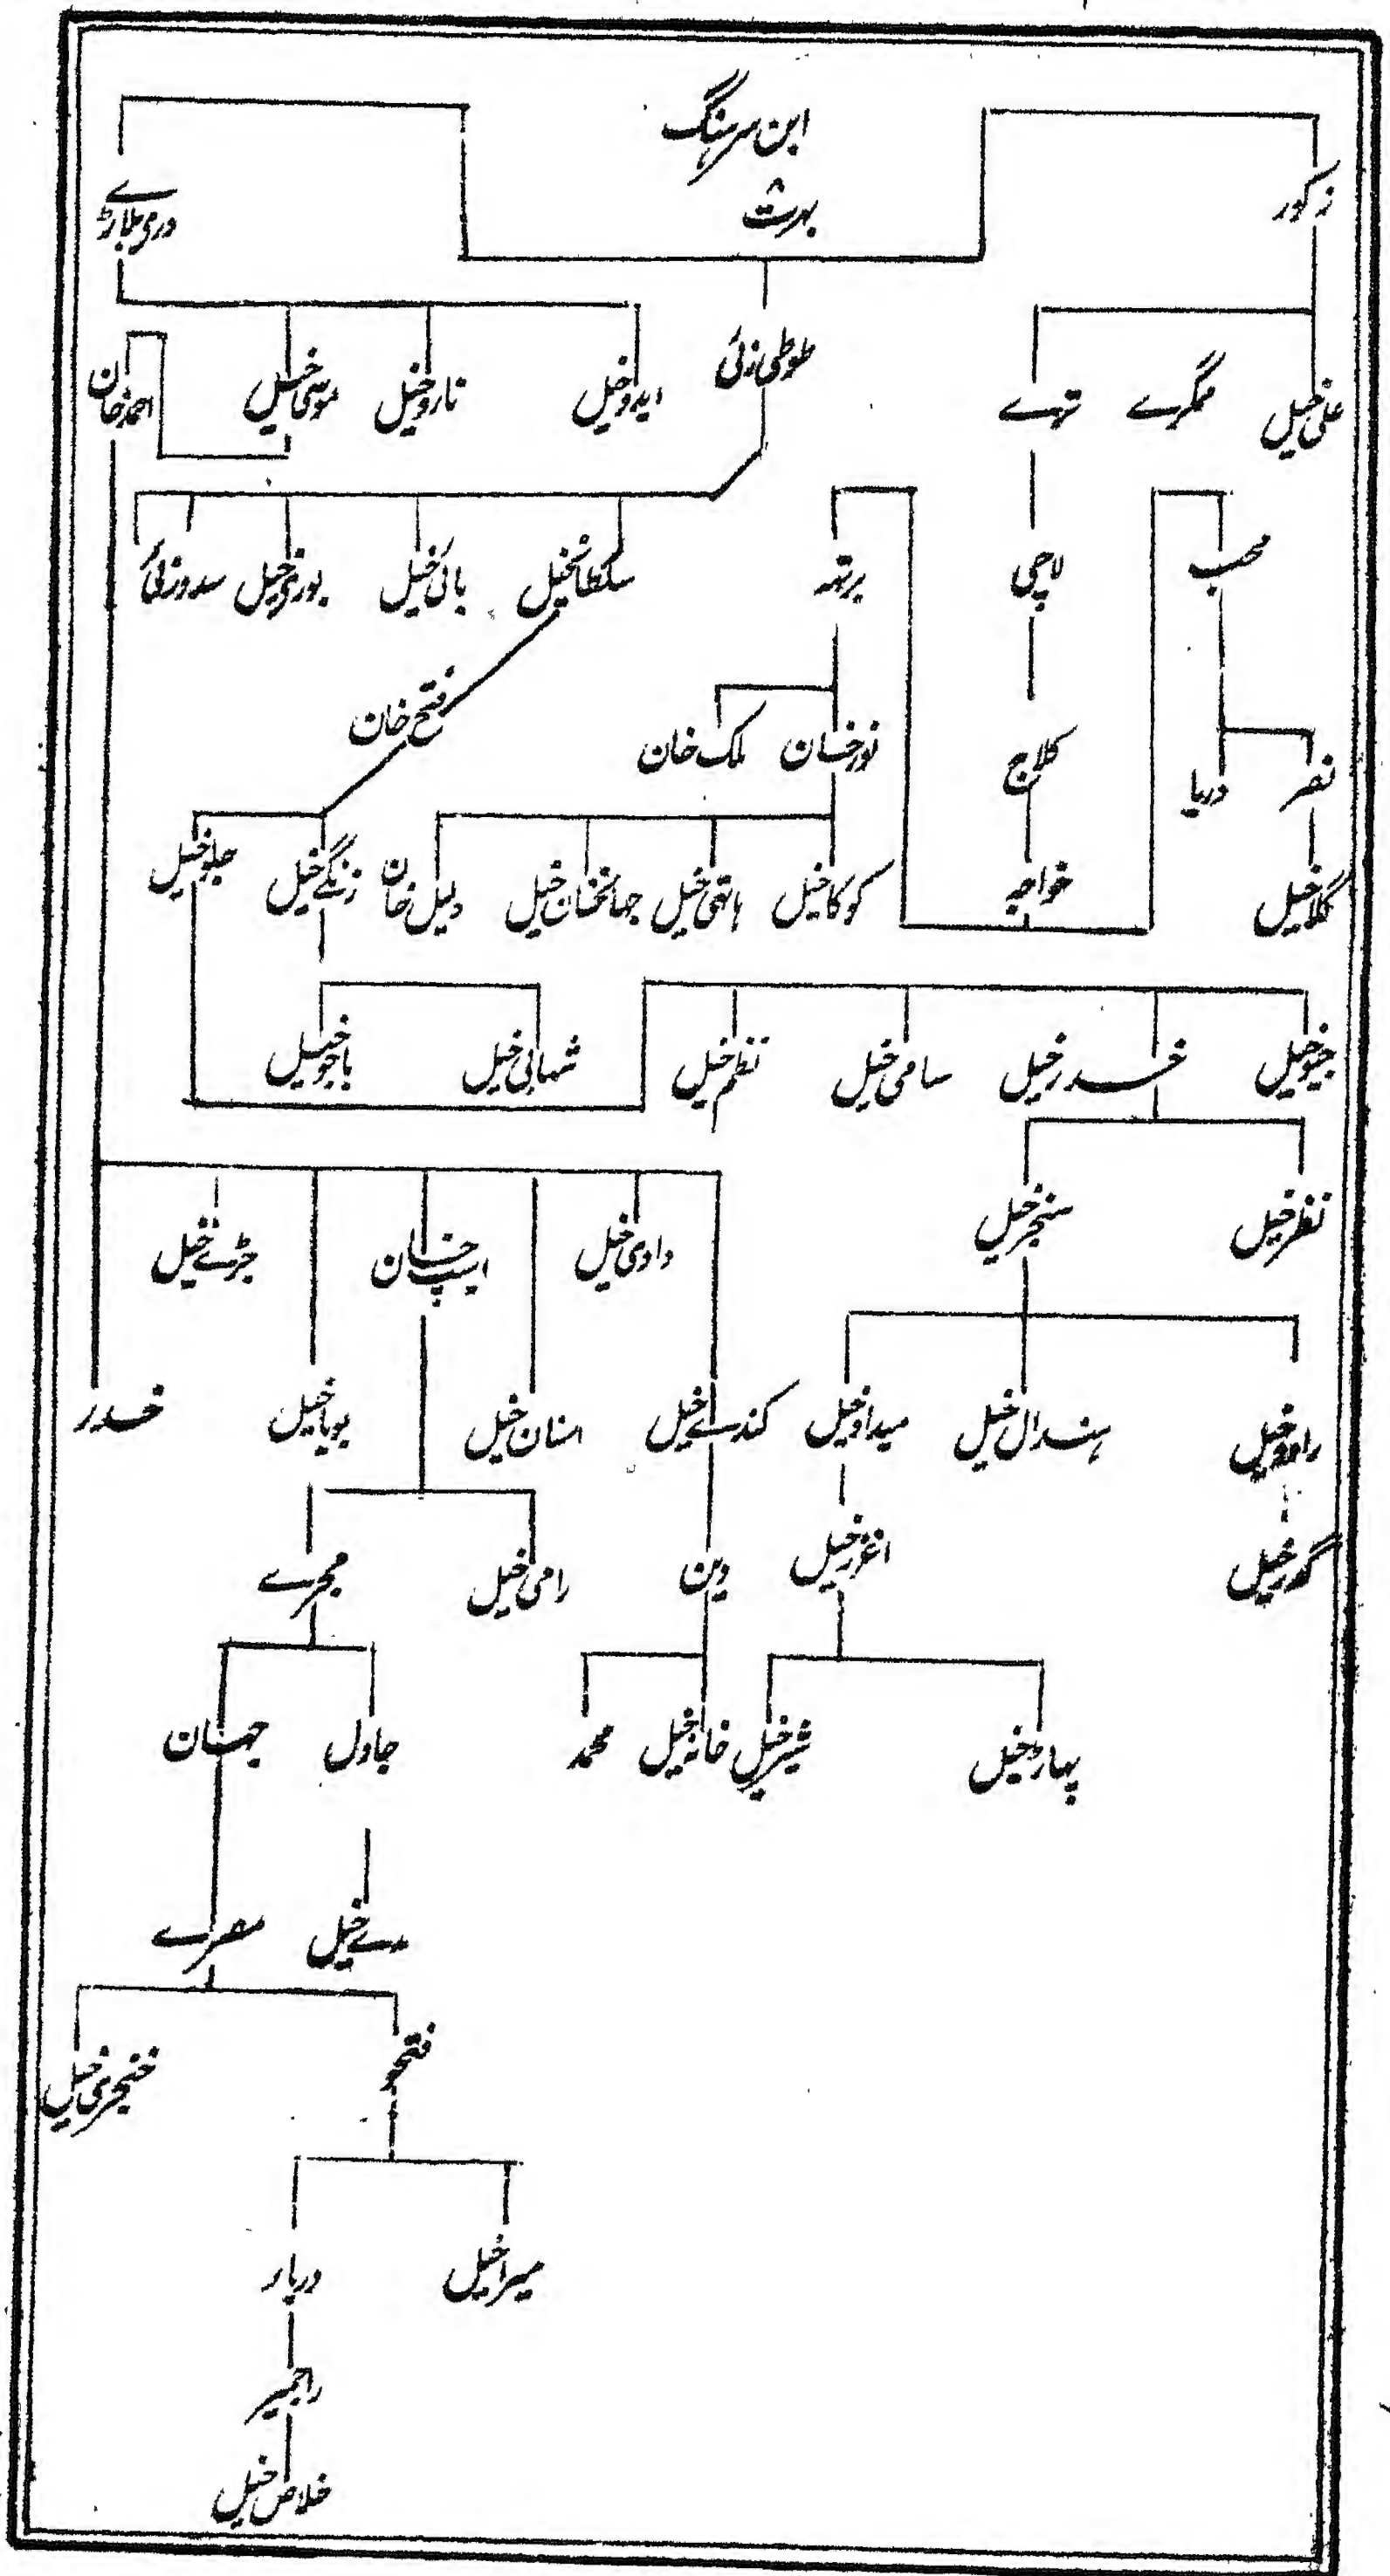 ابن سرہنگ
بہرت
زکور
دری پلارے
علی خیل
ممگرے
تہے
طوطی زئی
ایدوخیل
تاروخیل
موسی خیل
احمد خان
محب
لاچی
برتہ
سلطان خیل
بائی خیل
بوری خیل
سدوزئی
فتح خان
نصر
دریا
کلاج
نور خان
ملک خان
گلاخیل
خواجہ
کوکاخیل
ہاتھی خیل
جمانخان خیل
دلیل خان
زنگے خیل
جلوخیل
جیوخیل
خدر خیل
سامی خیل
نظم خیل
شہابی خیل
باجوخیل
نظر خیل
سنجر خیل
دادی خیل
ایسپ خان
جڑے خیل
راووخیل
ہندال خیل
میداوخیل
کندے خیل
اسنان خیل
یوپاخیل
خدر
گورخیل
اغزر خیل
دین
رامی خیل
مچرے
پہاڑ خیل
شیر خیل
خانہ خیل
محمد
جاول
جہان
مے خیل
مصرے
فتحو
خنجری خیل
میراخیل
دریار
راجمیر
خلاص خیل